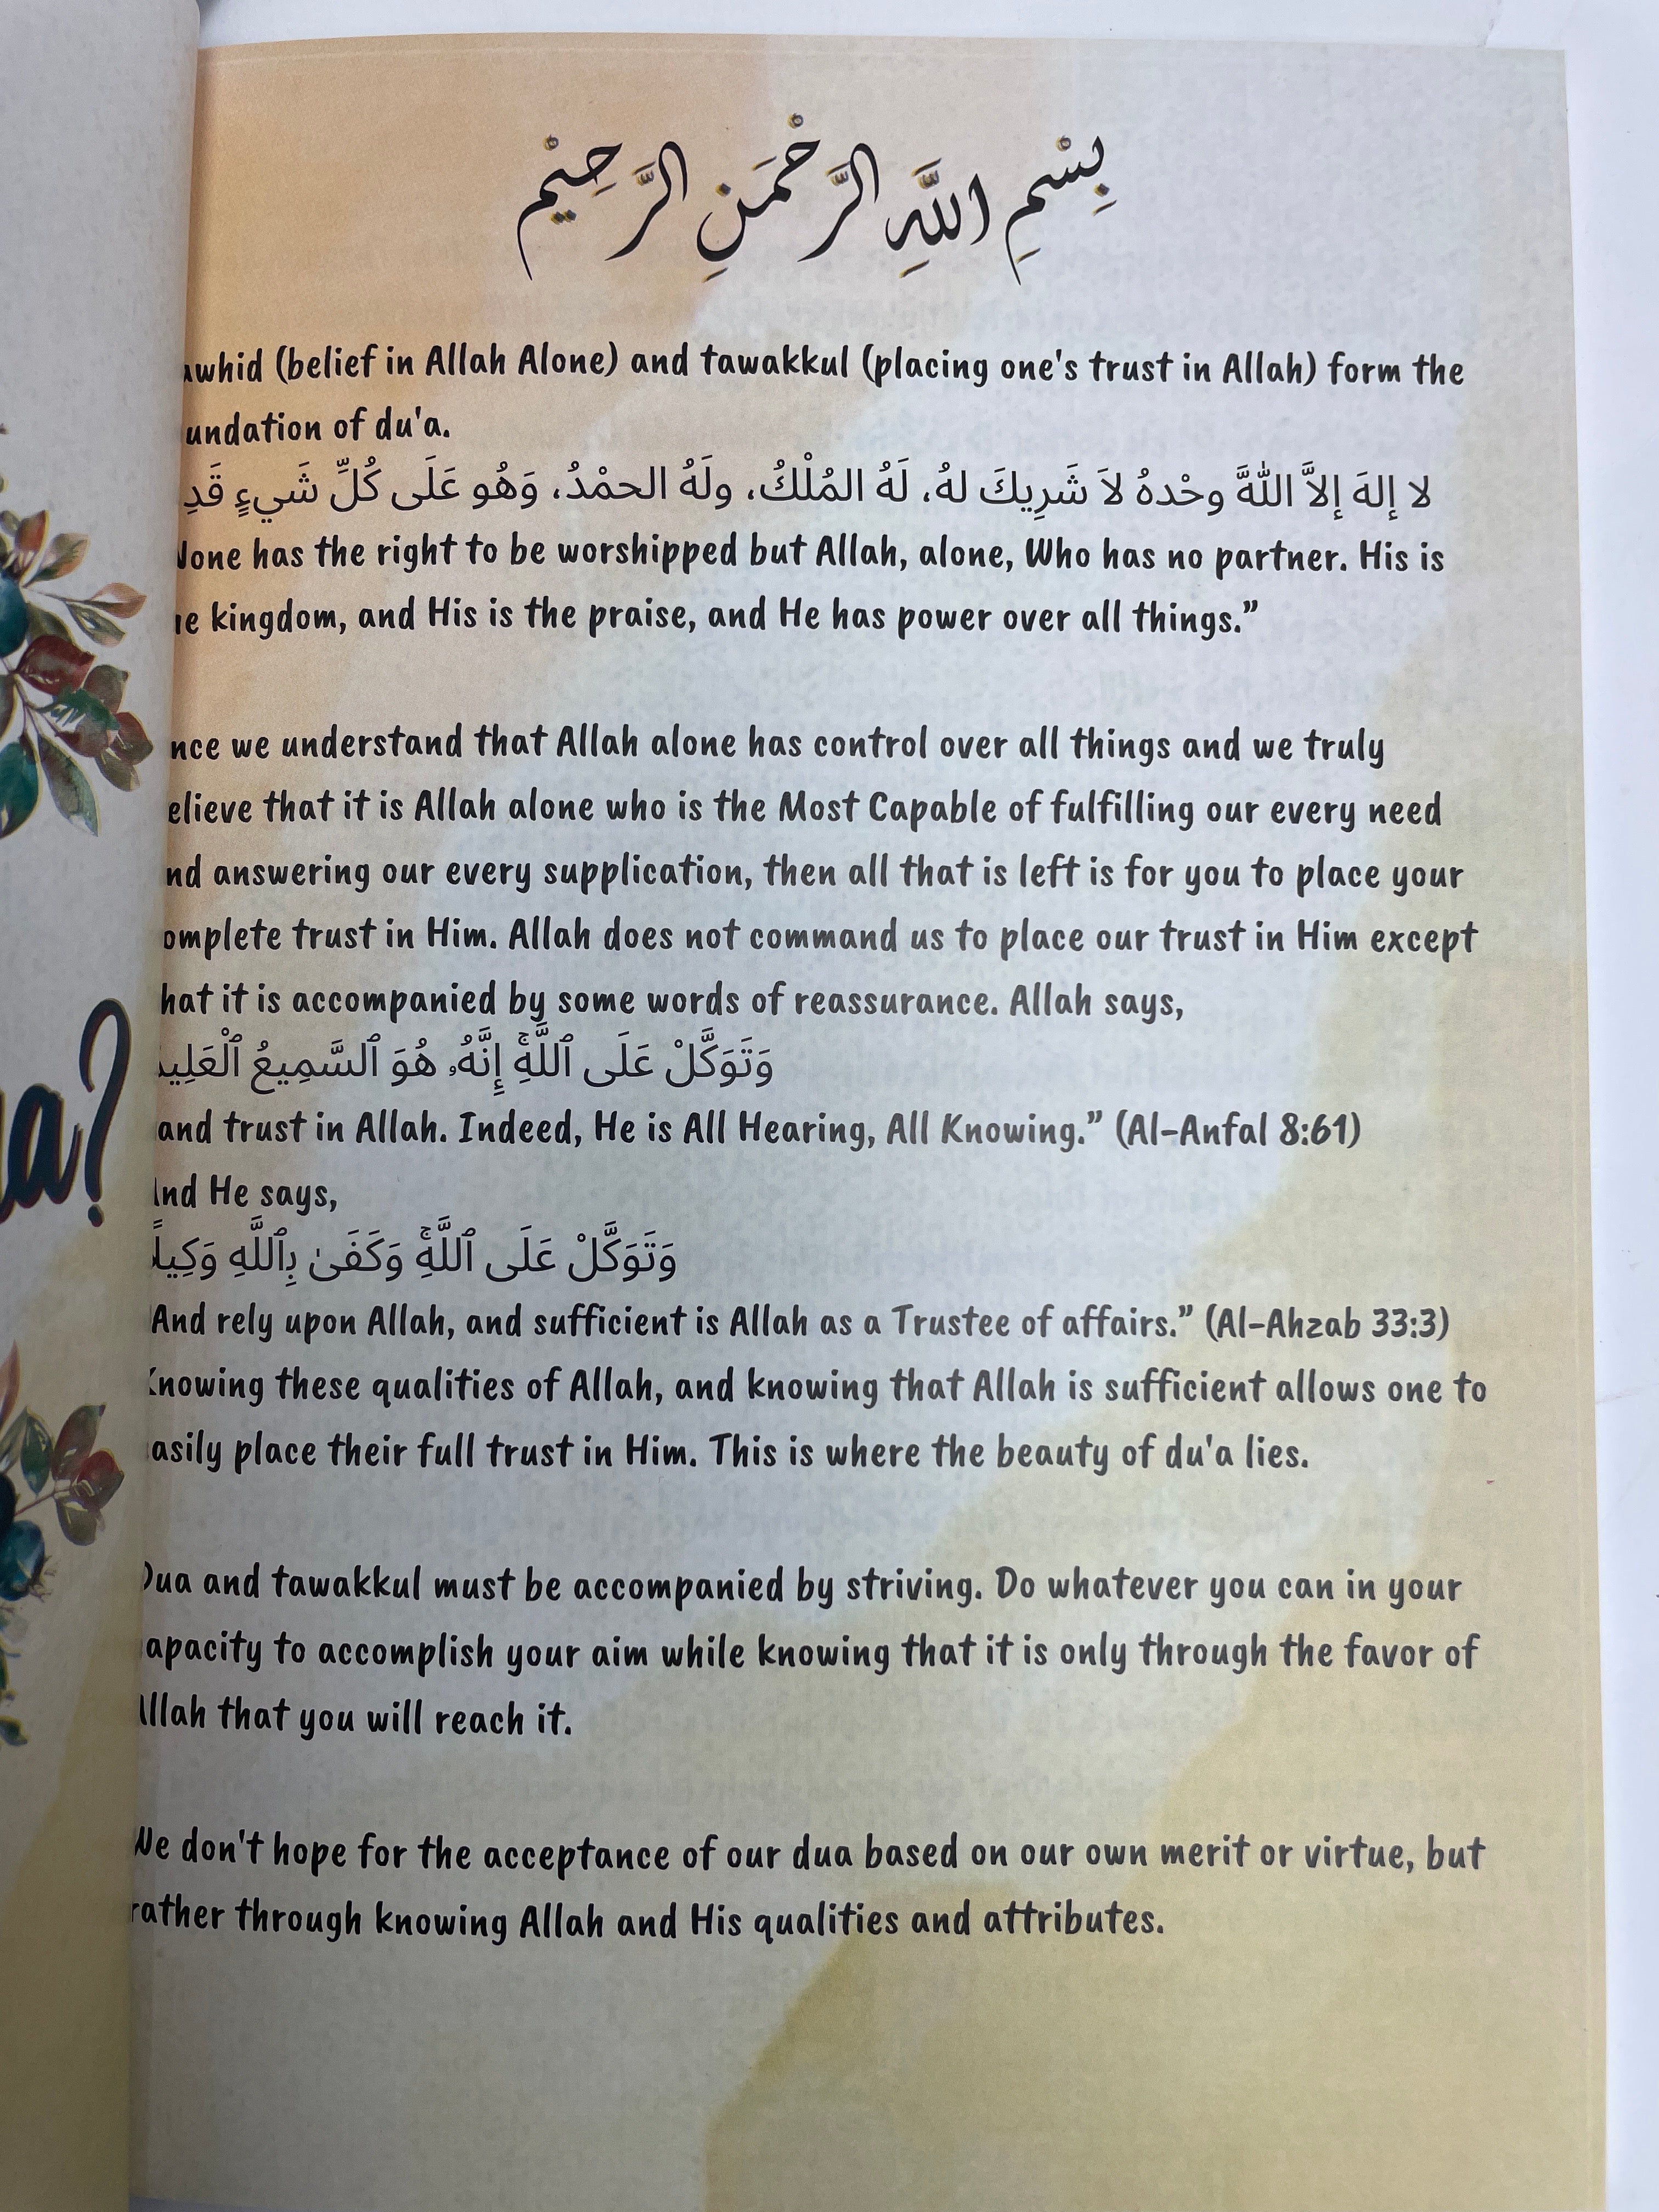 بِسْمِ اللَّهِ الرَّحْمَنِ الرَّحِيْمِ
(belief in Allah Alone) and tawakkul (placing one's trust in Allah) form the
of du'a.
لا إلهَ إلاَّ اللهَّ وحْدهُ لاَ شَرِيكَ لهُ، لَهُ المُلْكُ، ولَهُ الحمْدُ، وَهُو عَلَى كُلِّ شَيءٍ
None has the right to be worshipped but Allah, alone, Who has no partner. His is
kingdom, and His is the praise, and He has power over all things.”
we understand that Allah alone has control over all things and we truly
believe that it is Allah alone who is the Most Capable of fulfilling our every need
and answering our every supplication, then all that is left is for you to place your
complete trust in Him. Allah does not command us to place our trust in Him except
that it is accompanied by some words of reassurance. Allah says,
وَتَوَكَّلْ عَلَى ٱللَّهِۚ إِنَّهُۥ هُوَ ٱلسَّمِيعُ
and trust in Allah. Indeed, He is All Hearing, All Knowing.” (Al-Anfal 8:61)
And He says,
وَتَوَكَّلْ عَلَى ٱللَّهِۚ وَكَفَىٰ بِٱللَّهِ وَكِيلًا
And rely upon Allah, and sufficient is Allah as a Trustee of affairs.” (Al-Ahzab 33:3)
Knowing these qualities of Allah, and knowing that Allah is sufficient allows one to
easily place their full trust in Him. This is where the beauty of du'a lies.
Dua and tawakkul must be accompanied by striving. Do whatever you can in your
capacity to accomplish your aim while knowing that it is only through the favor of
Allah that you will reach it.
We don't hope for the acceptance of our dua based on our own merit or virtue, but
rather through knowing Allah and His qualities and attributes.